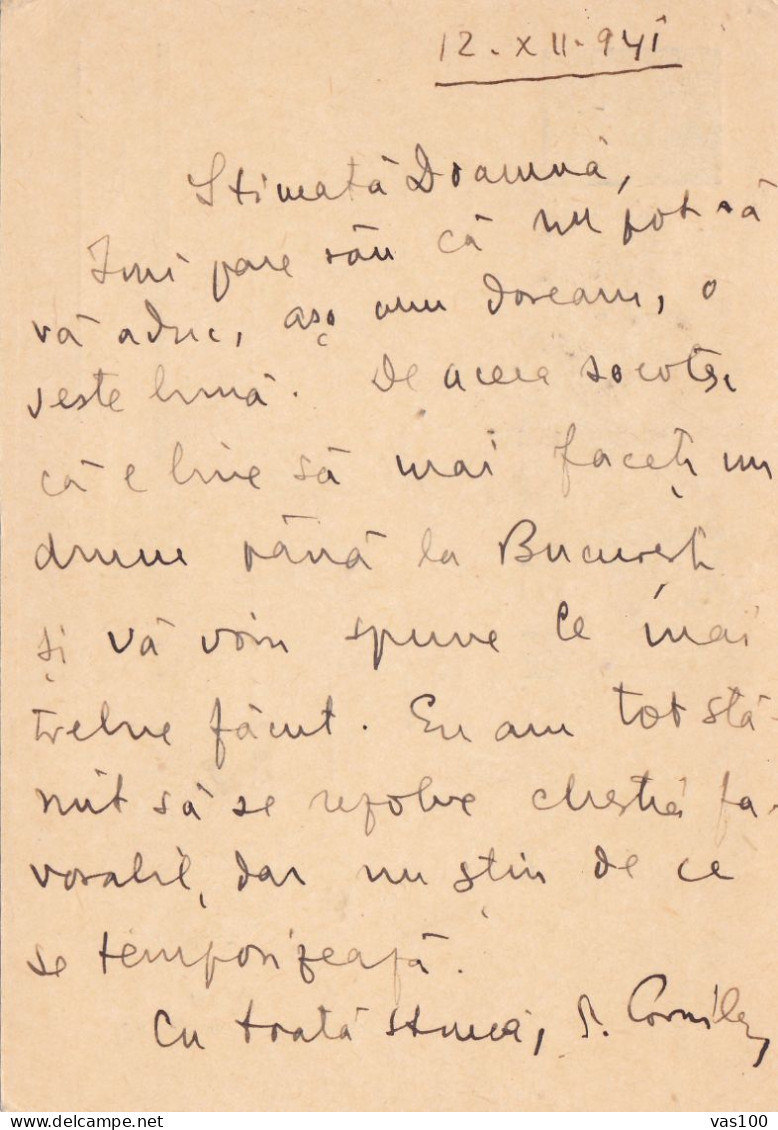 12.XII.941
Stimată Doamnă,
Îmi pare rău că nu pot să
vă aduc, așa cum doream, o
veste bună. De aceea socotesc
că e bine să mai faceți un
drum până la București
și vă voiu spune ce mai
trebue făcut. Eu am tot stă-
ruit să se rezolve chestia fa-
vorabil, dar nu știu de ce
se temporizează.
Cu toată stima,
vas100